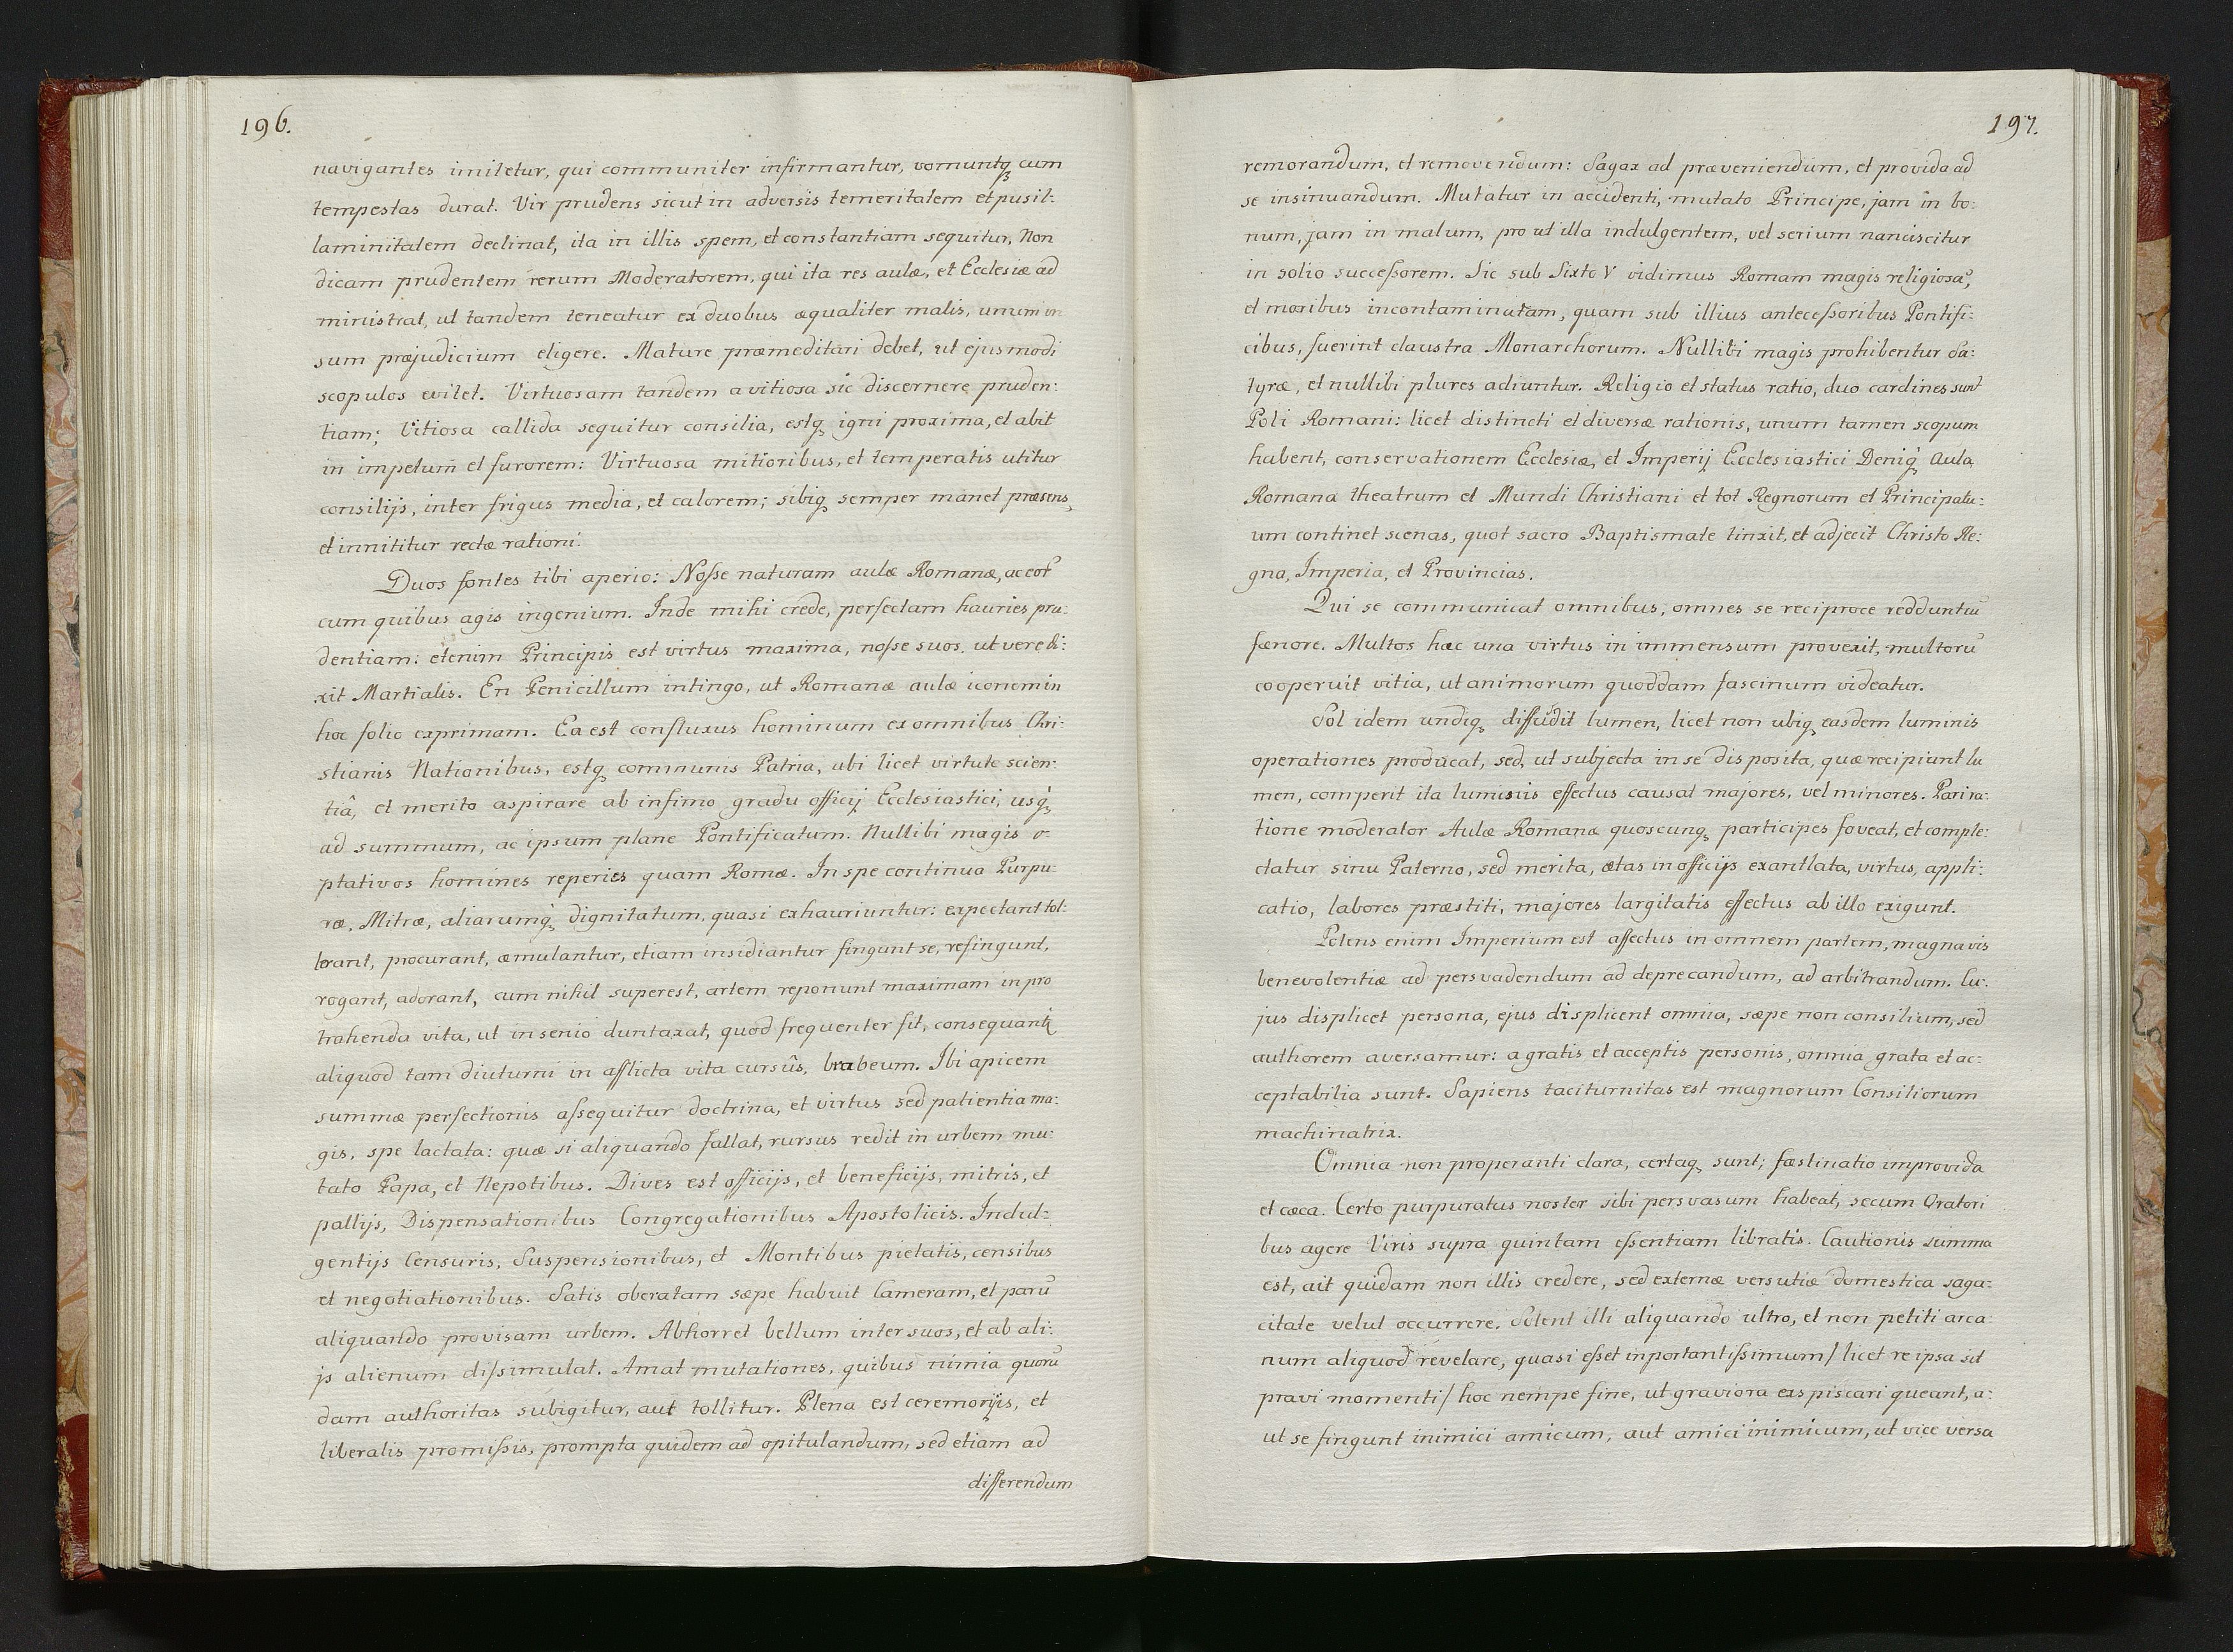 196.
navigantes imitetur, qui communiter infirmantur, vomuntq₃ cum
tempestas durat. Vir prudens sicut in adversis temeritatem et pusil:
laminitatem declinat, ita in illis spem, et constantiam sequitur, Non
dicam prudentem rerum Moderatorem, qui ita res aulæ, et Ecclesiæ ad
ministrat, ut tandem teneatur ex duobus æqualiter malis, unum in
sum præjudicium eligere. Mature præmeditari debet, ut ejusmodi
scopulos evitet. Virtuosam tandem a vitiosa sic discernere pruden:
tiam; Vitiosa callida sequitur consilia, estq₃ igni proxima, et abit
in impetum et furorem: Virtuosa mitioribus, et temperatis utitur
consilijs, inter frigus media, et calorem; sibiq₃ semper manet præsens,
et innititur rectæ rationi.
Duos fontes tibi aperio: Nosse naturam aulæ Romanæ, ac eor̄
cum quibus agis ingenium. Inde mihi crede, perfectam hauries pru:
dentiam: etenim Principis est virtus maxima, nosse suos. ut vere di:
xit Martialis. En Penicillum intingo, ut Romanæ aulæ iconem in
hoc folio exprimam. Ea est confluxus hominum ex omnibus Chri:
stianis Nationibus, estq₃ communis Patria, ubi licet virtute scien:
tiâ, et merito aspirare ab infimo gradu officij Ecclesiastici, usq₃
ad summum, ac ipsum plane Pontificatum. Nullibi magis o-
ptativos homines reperies quam Romæ. In spe continua Purpu:
ræ, Mitræ, aliarumq₃ dignitatum, quasi exhauriuntur: expectant tol:
lerant, procurant, æmulantur, etiam insidiantur fingunt se, refingunt,
rogant, adorant, cum nihil superest, artem reponunt maximam in pro
trahenda vita, ut in senio duntaxat, quod frequenter fit, consequantr̄
aliquod tam diuturni in afflicta vita cursûs, brabeum. Ibi apicem
summæ perfectionis assequitur doctrina, et virtus sed patientia ma:
gis, spe lactata: quæ si aliquando fallat, rursus redit in urbem mu:
tato Papa, et Nepotibus. Dives est officijs, et beneficijs, mitris, et
pallijs, Dispensationibus Congregationibus Apostolicis. Indul=
gentijs Censuris, Suspensionibus, et Montibus pietatis, censibus
et negotiationibus. Satis oberatam sæpe habuit Cameram, et parū
aliquando provisam urbem. Abhorret bellum inter suos, et ab ali:
js alienum dissimulat. Amat mutationes, quibus nimia quorū
dam authoritas subigitur, aut tollitur. Plena est ceremonijs, et
liberalis promissis, prompta quidem ad opitulandum, sed etiam ad
differendum
197.
remorandum, et removendum: Sagax ad præveniendum, et provida ad
se insinuandum. Mutatur in accidenti, mutato Principe, jam in bo:
num, jam in malum, pro ut illa indulgentem, vel serium nanciscitur
in solio successorem. Sic sub Sixto V vidimus Romam magis religiosā,
et moribus incontaminatam, quam sub illius antecessoribus Pontifi:
cibus, fuerint claustra Monarchorum. Nullibi magis prohibentur Sa:
tyræ, et nullibi plures adiuntur. Religio et status ratio, duo cardines sunt
Poli Romani: licet distincti et diversæ rationis, unum tamen scopum
habent, conservationem Ecclesiæ, et Imperij Ecclesiastici Deniq₃ Aula
Romana theatrum et Mundi Christiani et tot Regnorum et Principatu:
um continet scenas, quot sacro Baptismate tinxit, et adjecit Christo Re:
gna, Imperia, et Provincias.
Qui se communicat omnibus, omnes se reciproce redduntū
fænore. Multos hæc una virtus in immensum provexit, multorū
cooperuit vitia, ut animorum quoddam fascinum videatur.
Sol idem undiq₃ diffudit lumen, licet non ubiq₃ easdem luminis
operationes producat, sed, ut subjecta in se disposita, quæ recipiunt lu
men, comperit ita luminis effectus causat majores, vel minores. Pari ra:
tione moderator Aulæ Romanæ quoscunq₃ participes foveat, et comple:
ctatur sinu Paterno, sed merita, ætas in officijs exantlata, virtus, appli:
catio, labores præstiti, majores largitatis effectus ab illo exigunt.
Potens enim Imperium est affectus in omnem partem, magna vis
benevolentiæ ad persvadendum ad deprecandum, ad arbitrandum. Cu:
jus displicet persona, ejus displicent omnia, sæpe non consilium, sed
authorem aversamur: a gratis et acceptis personis, omnia grata et ac:
ceptabilia sunt. Sapiens taciturnitas est magnorum Consiliorum
machinatrix.
Omnia non properanti clara, certaq₃ sunt; fæstinatio improvida
et cæca. Certo purpuratus noster sibi persvasum habeat, secum Oratori
bus agere Viris supra quintam essentiam libratis. Cautionis summa
est, ait quidam non illis credere, sed externæ versutiæ domestica saga:
citate velut occurrere. Solent illi aliquando ultro, et non petiti arca
num aliquod revelare, quasi esset inportantissimum/ licet re ipsa sit
pravi momenti/ hoc nempe fine, ut graviora exspiscari queant, a:
ut se fingunt inimici amicum, aut amici inimicum, ut vice versa